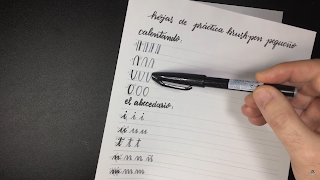 hojas de práctica brush pen pequeño
calentando.
el abecedario.
i i i
u u u
t t t
n n n ñ
m m m